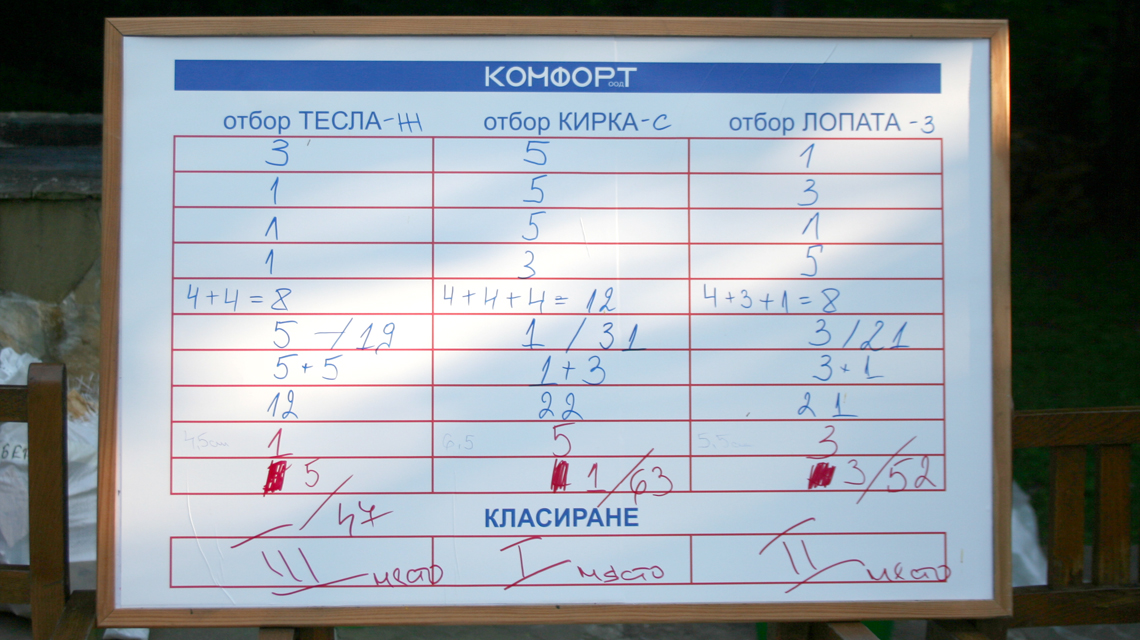 КОМФОРТ ООД
отбор ТЕСЛА-Ж отбор КИРКА-С отбор ЛОПАТА-З
3 5 1
1 5 3
1 5 1
1 3 5
4+4=8 4+4+4=12 4+3+1=8
5 /19 1 /31 3/21
5+5 1+3 3+1
12 22 21
4,5см 1 6,5 5 5,5см 3
5 /47 1 /63 3/52
КЛАСИРАНЕ
III място I място II място